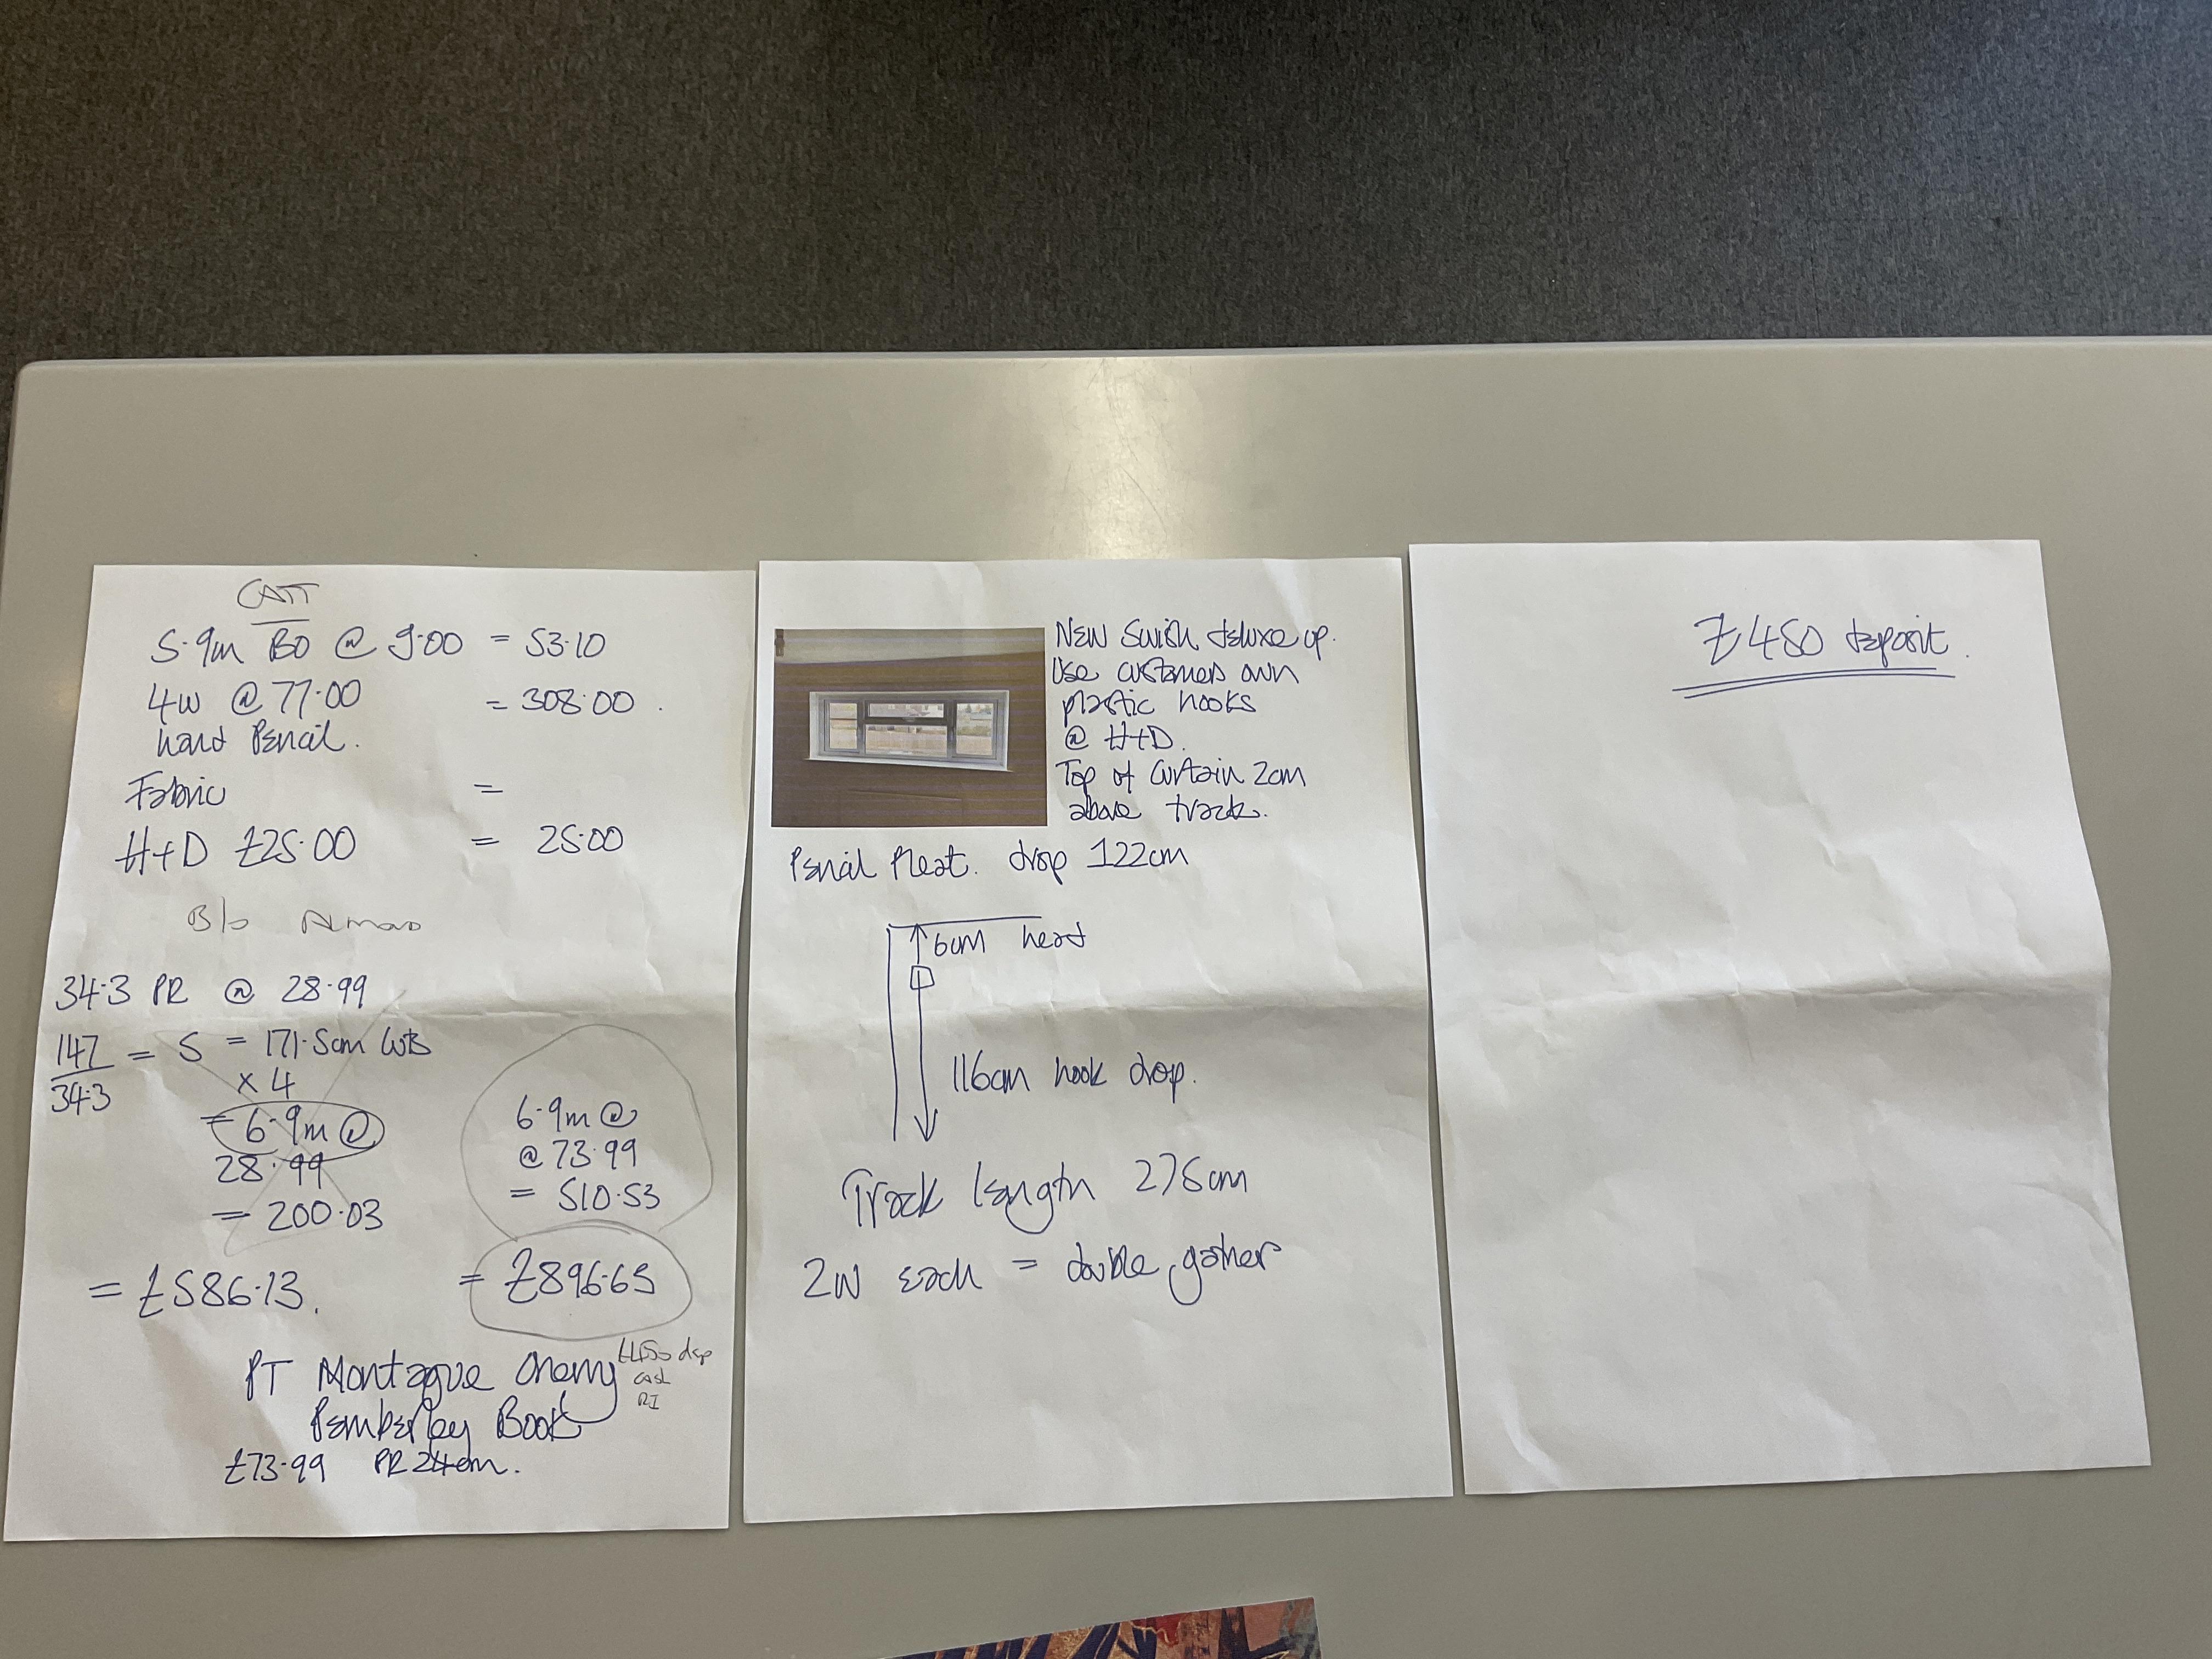 CATT
5.9m BO @ 9.00 = 53.10
4W @ 77.00 = 308.00.
hand Pencil.
Fabric =
H+D £25.00 = 25.00
B/o
34.3 PR @ 28.99
147 = 5 = 171.5cm
34.3
x 4
= 6.9m @
28.99
= 200.03
6.9m @
@ 73.99
= 510.53
= £586.13.
= £896.63
PT Montague Cherry
Pemberley Book
£73.99 PR 24cm.
cash
New Swish deluxe up.
Use customers own
plastic hooks
@ H+D.
Top of curtain 2cm
above track.
Pencil Pleat. drop 122cm
6cm head
116cm hook drop.
Track length 275cm
2W each = double gather
£450 deposit.